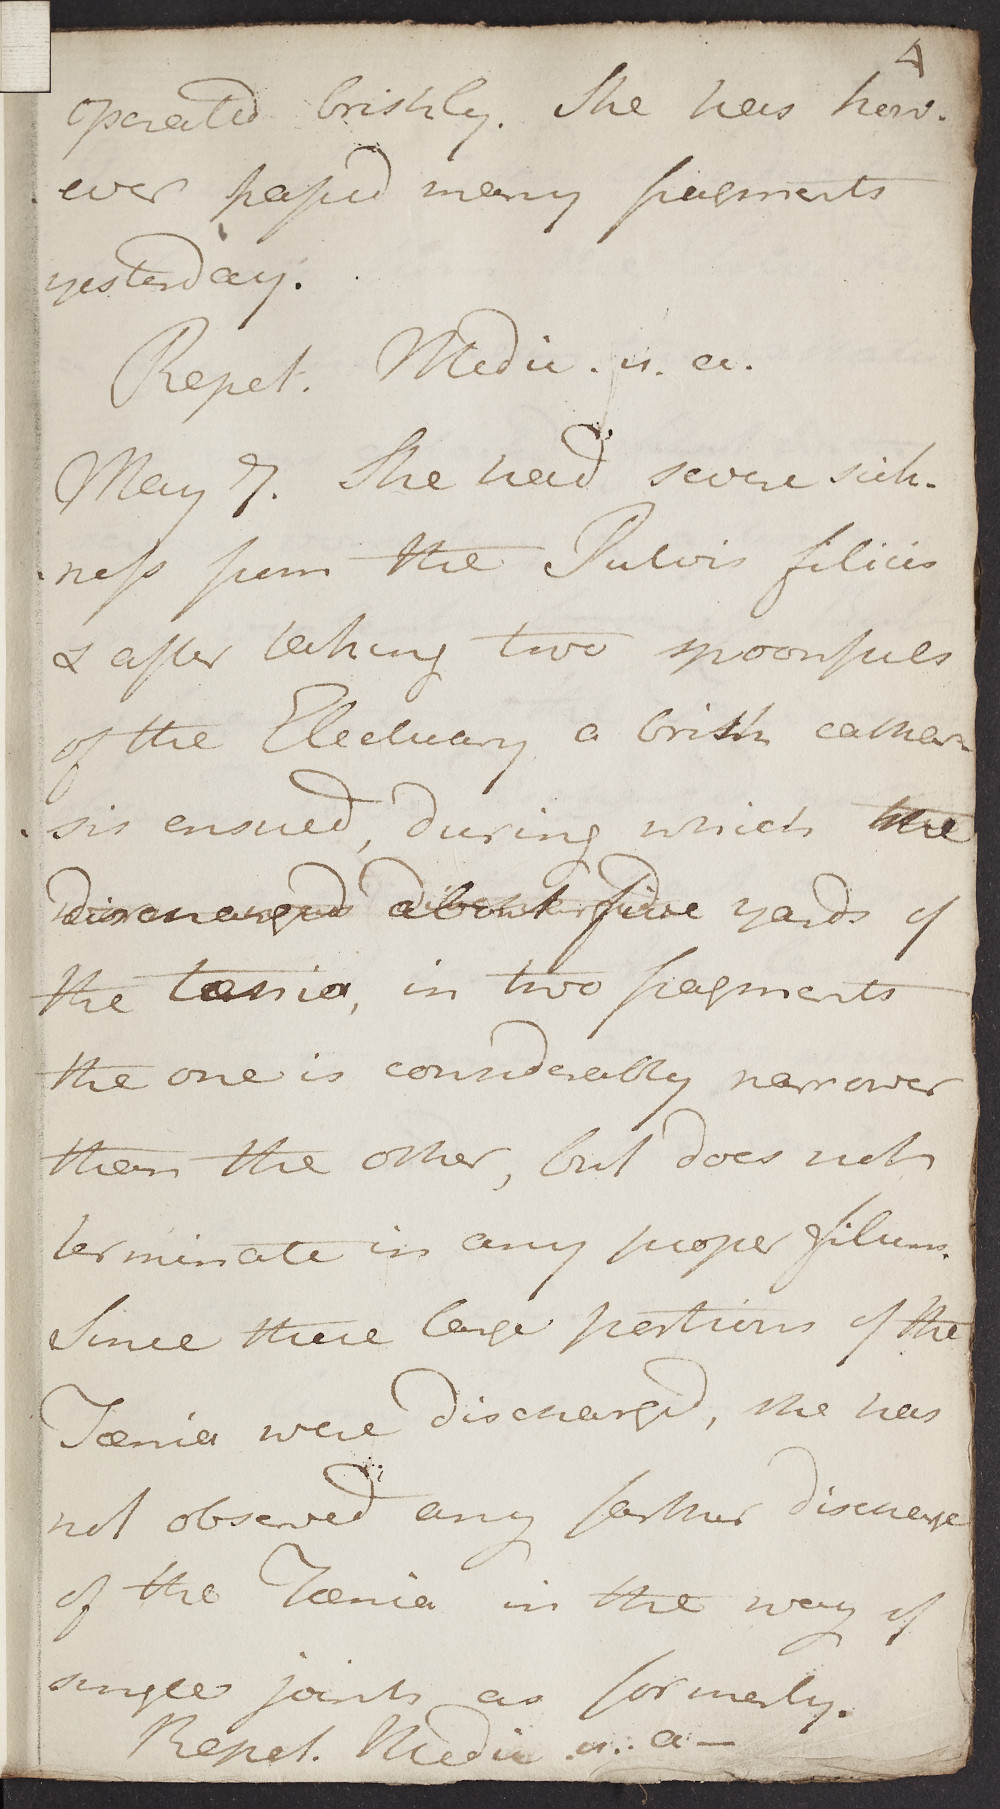 4
operated briskly. She has how-
ever passed many fragments
yesterday.
Repet. Medic. u. a.
May 7. She had severe sick-
ness from the Pulvis filicis
& after taking two spoonfuls
of the Electuary a brisk cathar-
sis ensued, during which she
discharged about five yards of
the taenia, in two fragments
the one is considerably narrower
than the other, but does not
terminate in any proper filum.
Since these large portions of the
Taenia were discharged, she has
not observed any farther discharge
of the Taenia in the way of
single joints as formerly.
Repet. Medic. u. a—